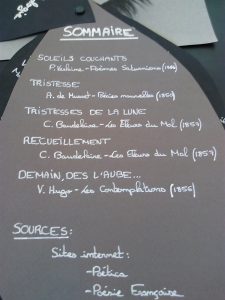 SOMMAIRE
SOLEILS COUCHANTS
P. Verlaine - Poèmes Saturniens (1866)
TRISTESSE
A. de Musset - Poésies nouvelles (1850)
TRISTESSES DE LA LUNE
C. Baudelaire - Les Fleurs du Mal (1857)
RECUEILLEMENT
C. Baudelaire - Les Fleurs du Mal (1857)
DEMAIN, DES L'AUBE...
V. Hugo - Les Contemplations (1856)
SOURCES:
Sites internet:
- Poética
- Poésie Française